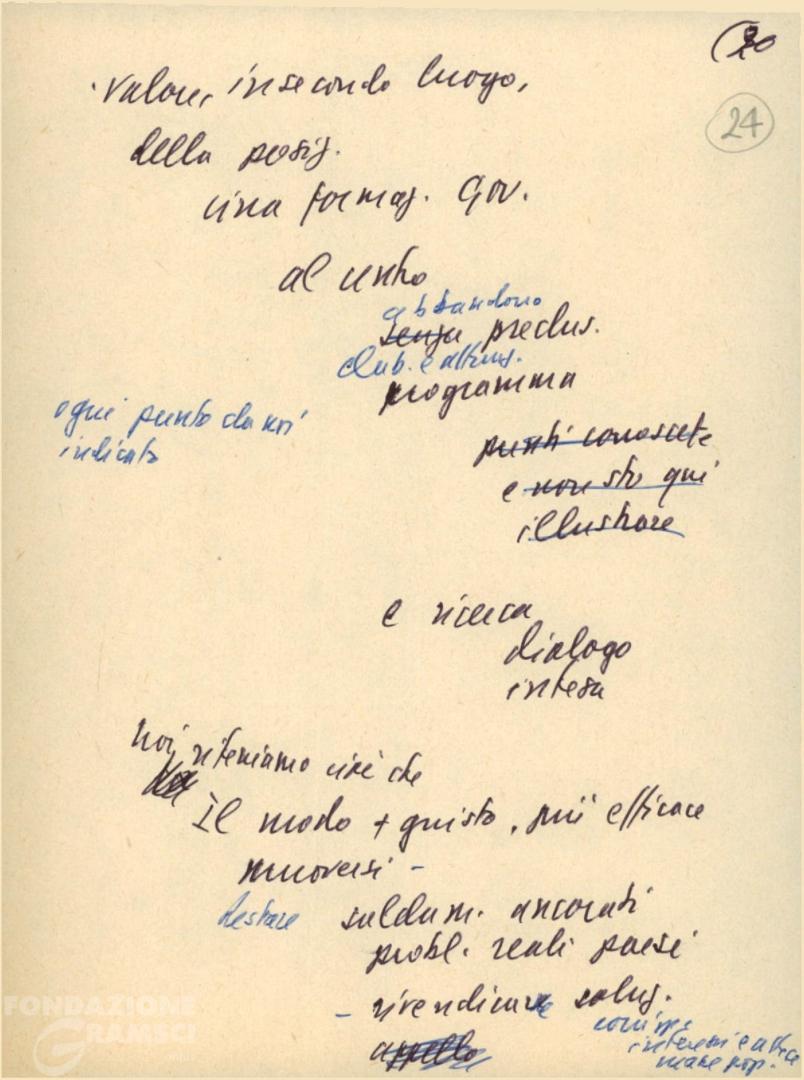 (30
24
Valore, in secondo luogo,
della posiz.
circa formaz. Gov.
al centro
abbandono
senza preclus.
programma
ogni punto da noi
indicato
punti conoscete
e non sto qui
illustrare
e ricerca
dialogo
intesa
Noi riteniamo cioè che
Il modo + giusto, più efficace
muoversi -
Restare saldam. ancorati
probl. reali paesi
- rivendicare soluz.
appello
interessi e attese
masse pop.
FONDAZIONE
GRAMSCI